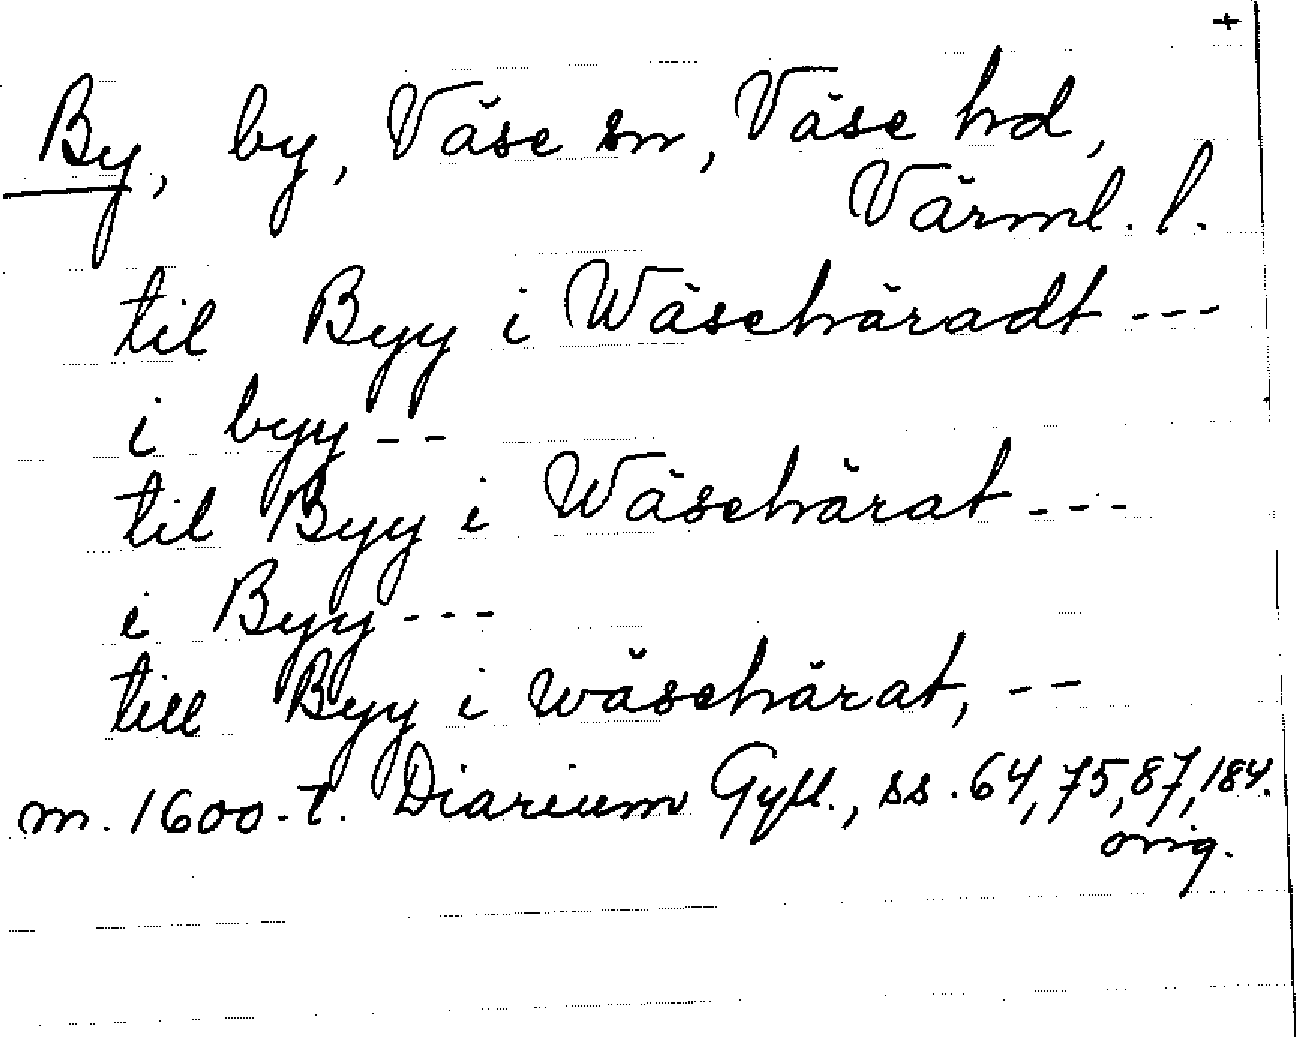 +
By, by, Väse sn, Väse hd,
Värml. l.
til Byy i Wäsehäradt ---
i byy --
til Byy i Wäsehärat ---
i Byy ---
till Byy i wäsehärat, --
m. 1600-t. Diarium Gyll., ss. 64, 75, 87, 184.
orig.